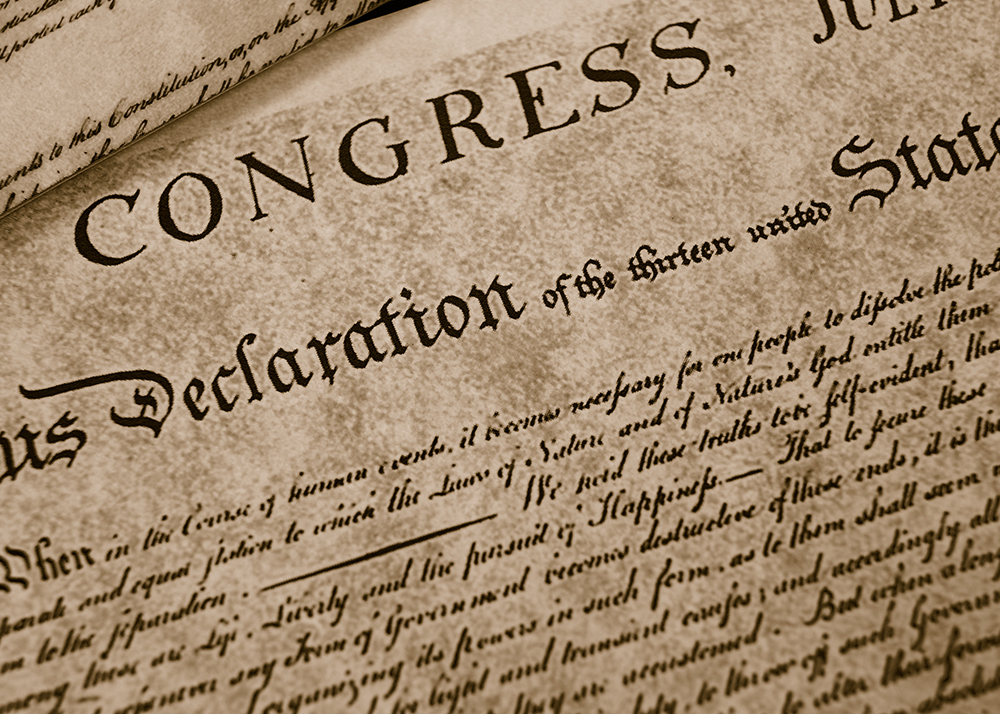 protect each of
ents to this Constitution, or, on the App
CONGRESS, JULY
us Declaration of the thirteen united State
When in the Course of human events, it becomes necessary for one people to dissolve the pol
parate and equal station to which the Laws of Nature and of Nature's God entitle them
m to the separation. We hold these truths to be self-evident, tha
mong these are Life, Liberty and the pursuit of Happiness.— That to secure these
henever any Form of Government becomes destructive of these ends, it is the
organizing its powers in such form, as to them shall seem
for light and transient causes; and accordingly all
they are accustomed. But when a long
to throw off such Govern
to alter their forme